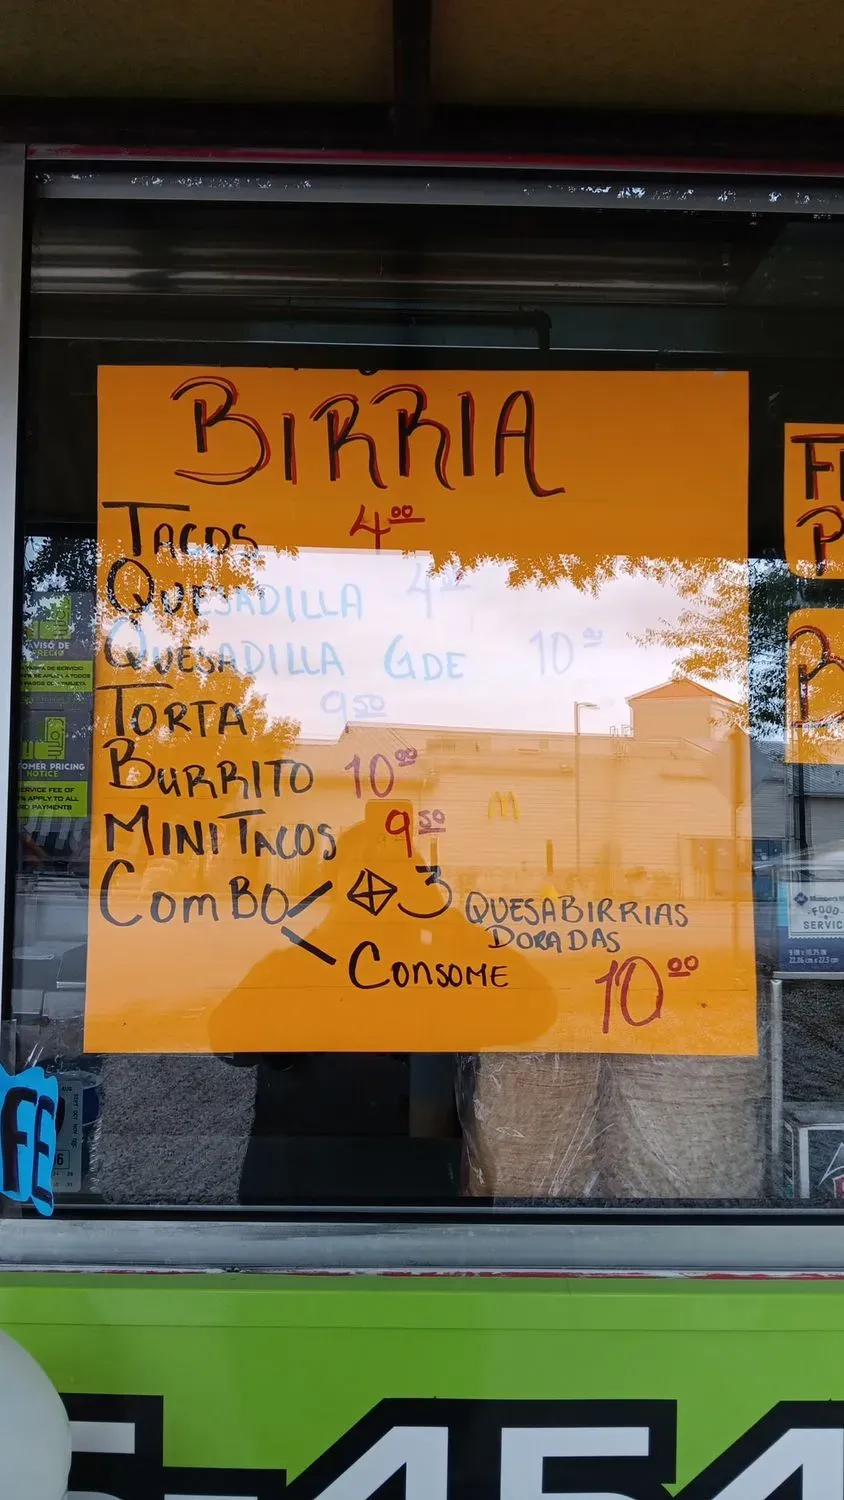 BIRRIA
TACOS 4.00
QUESADILLA
QUESADILLA GDE 10.00
TORTA 9.50
BURRITO 10.00
MINI TACOS 9.50
COMBO 3 QUESABIRRIAS
DORADAS
CONSOME
10.00
AVISO DE
PRECIO
OMER PRICING
NOTICE
ERVICE FEE OF
% APPLY TO ALL
RD PAYMENTS
F
P
B
FOOD
SERVIC
FE